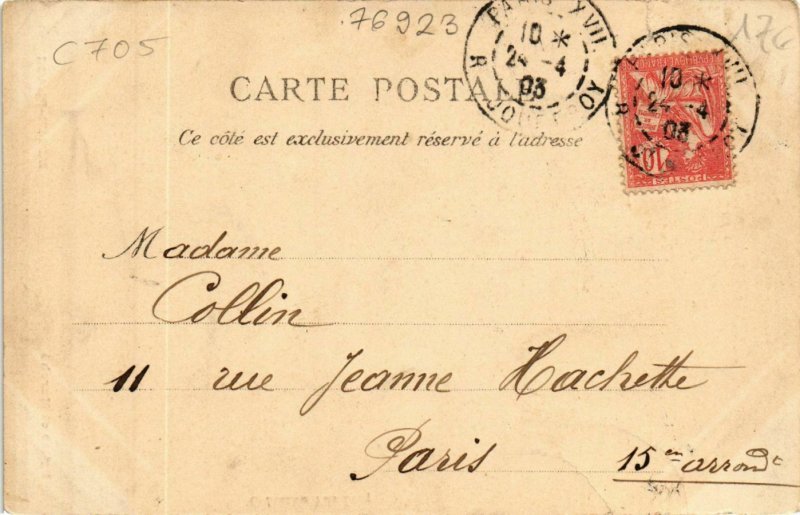 C705
76923
176
PARIS XVII
10 *
24 -4
03
R. JOUFFROY
CARTE POSTALE
Ce côté est exclusivement réservé à l'adresse
10
POSTES
10 *
24 -4
03
Madame
Collin
11 rue Jeanne Hachette
Paris 15en arrondt